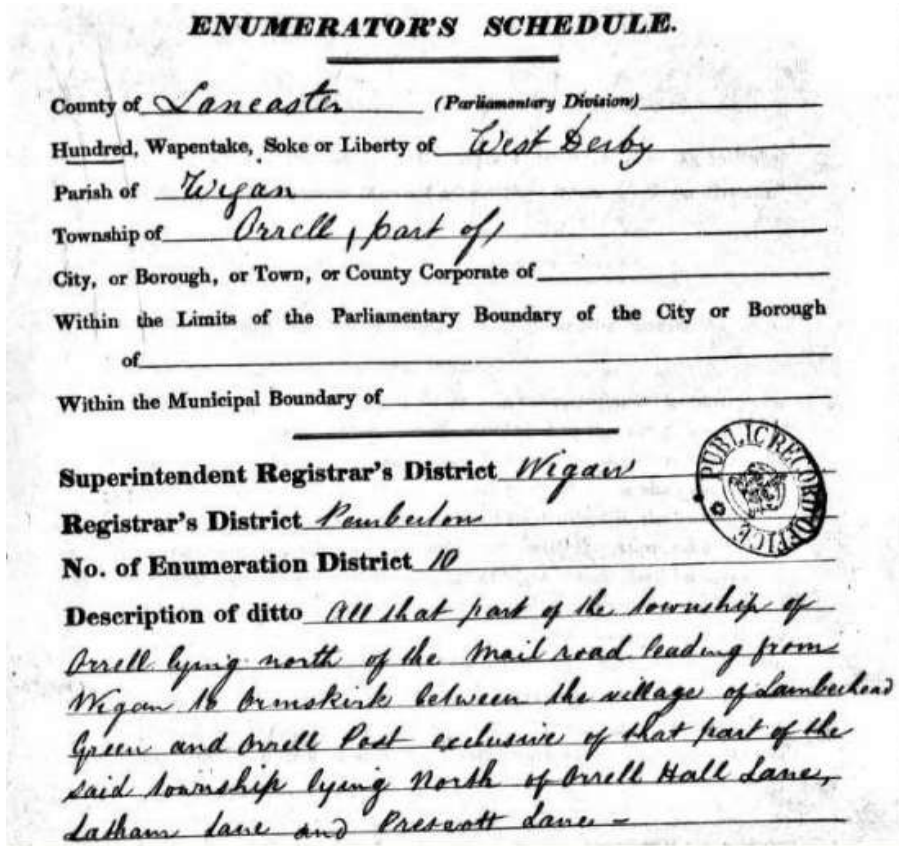 ENUMERATOR'S SCHEDULE.
County of Lancaster (Parliamentary Division)
Hundred, Wapentake, Soke or Liberty of West Derby
Parish of Wigan
Township of Orrell, part of,
City, or Borough, or Town, or County Corporate of
Within the Limits of the Parliamentary Boundary of the City or Borough
of
Within the Municipal Boundary of
Superintendent Registrar's District Wigan
PUBLIC RECORD OFFICE
Registrar's District Pemberton
No. of Enumeration District 10
Description of ditto All that part of the township of
Orrell lying north of the Mail road leading from
Wigan to Ormskirk between the village of Lamberhead
Green and Orrell Post exclusive of that part of the
said township lying North of Orrell Hall Lane,
Latham Lane and Prescott Lane -